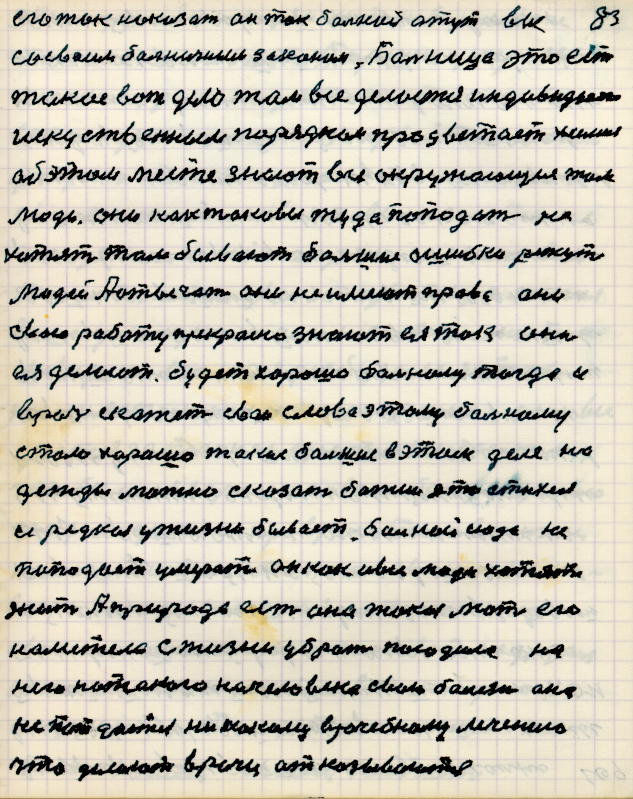 его так наказат он так балной атут вы 83
сосваим балничним законом, Балница это ест
такое вот дело там все делается индовидуално
искуственным порядком продветает химия
об этом месте знают все окружающия там
люди. они как таковы туда попадат не
хотят там бывают болшие ошибки режут
людей А отвечат они не имеют права они
свою работу прекрасно знают ея так они
ея делают. будет хорошо балному тогда и
врач скажет сваи слова этому балному
стало харашо такие балшие в этом деле на
дежды можно сказат
и редкая у жизни бывает. балной сюда не
попадает умират он как иви люди хотят
жит А природа ест она такая мат его
наметела с жизни убрат посадила на
него на такого на человека сваю балезн она
не поддается никакому врачебному лечению
что делают врачи атказываются